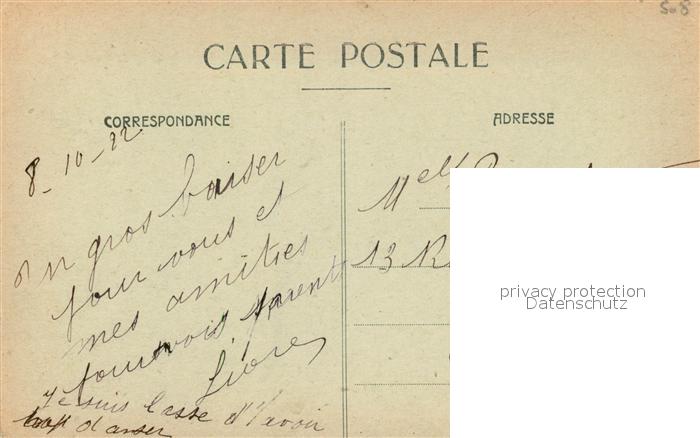 5-8
CARTE POSTALE
CORRESPONDANCE
ADRESSE
8-10-22
un gros baiser
pour vous et
mes amitiés
pour vos parents
je suis lasse d'avoir
trop danser
Melle
13 R
privacy protection
Datenschutz